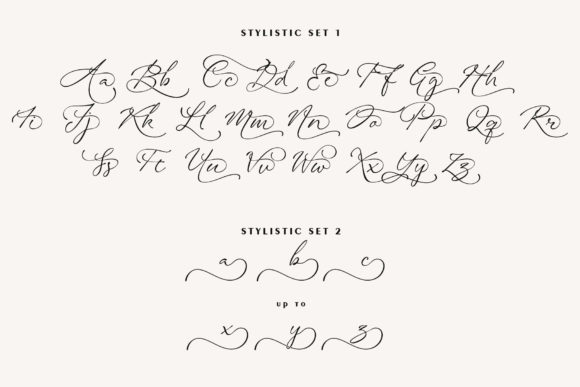 STYLISTIC SET 1
Aa Bb Cc Dd Ee Ff Gg Hh
Ii Jj Kk Ll Mm Nn Oo Pp Qq Rr
Ss Tt Uu Vv Ww Xx Yy Zz
STYLISTIC SET 2
a b c
up to
x y z